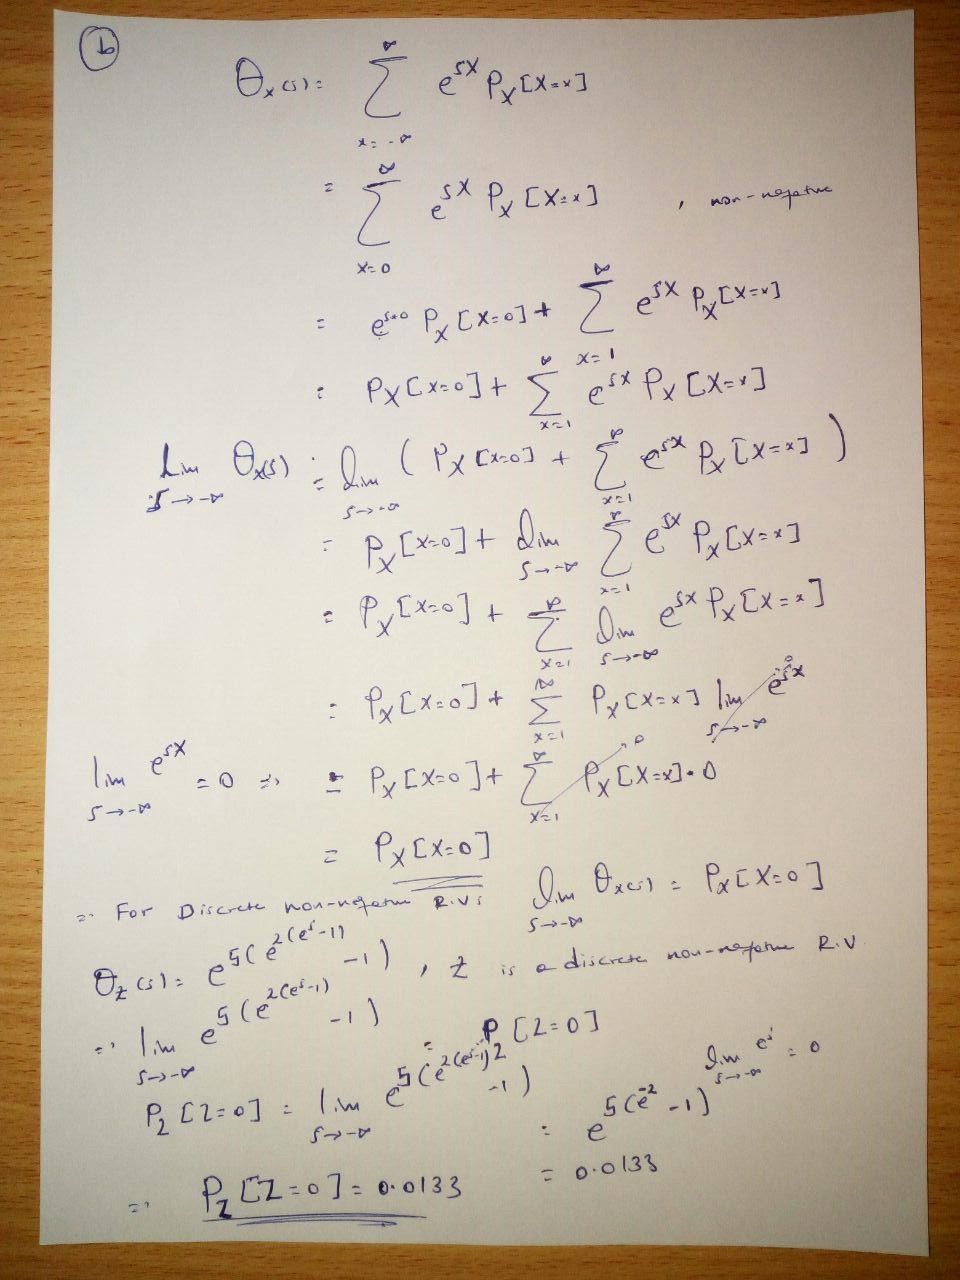 b
θ_X(s) = ∑_{x=-∞}^{∞} e^{sX} P_X[X=x]
= ∑_{x=0}^{∞} e^{sX} P_X[X=x] , non-negative
= e^{s*0} P_X[X=0] + ∑_{x=1}^{∞} e^{sX} P_X[X=x]
= P_X[X=0] + ∑_{x=1}^{∞} e^{sX} P_X[X=x]
Lim_{s→-∞} θ_X(s) = Lim_{s→-∞} ( P_X[X=0] + ∑_{x=1}^{∞} e^{sX} P_X[X=x] )
= P_X[X=0] + Lim_{s→-∞} ∑_{x=1}^{∞} e^{sX} P_X[X=x]
= P_X[X=0] + ∑_{x=1}^{∞} Lim_{s→-∞} e^{sX} P_X[X=x]
= P_X[X=0] + ∑_{x=1}^{∞} P_X[X=x] lim_{s→-∞} e^{sX} 0
lim_{s→-∞} e^{sX} = 0 ⇒ = P_X[X=0] + ∑_{x=1}^{∞} P_X[X=x]·0 0
= P_X[X=0]
∴ For Discrete non-negative R.Vs Lim_{s→-∞} θ_X(s) = P_X[X=0]
θ_Z(s) = e^{5(e^{2(e^s-1)} -1)} , Z is a discrete non-negative R.V
∴ lim_{s→-∞} e^{5(e^{2(e^s-1)} -1)} = P[Z=0]
P_Z[Z=0] = lim_{s→-∞} e^{5(e^{2(e^s-1)2} -1)} Lim_{s→-∞} e^s = 0
= e^{5(e^{-2} -1)}
= 0.0133
∴ P_Z[Z=0] = 0.0133